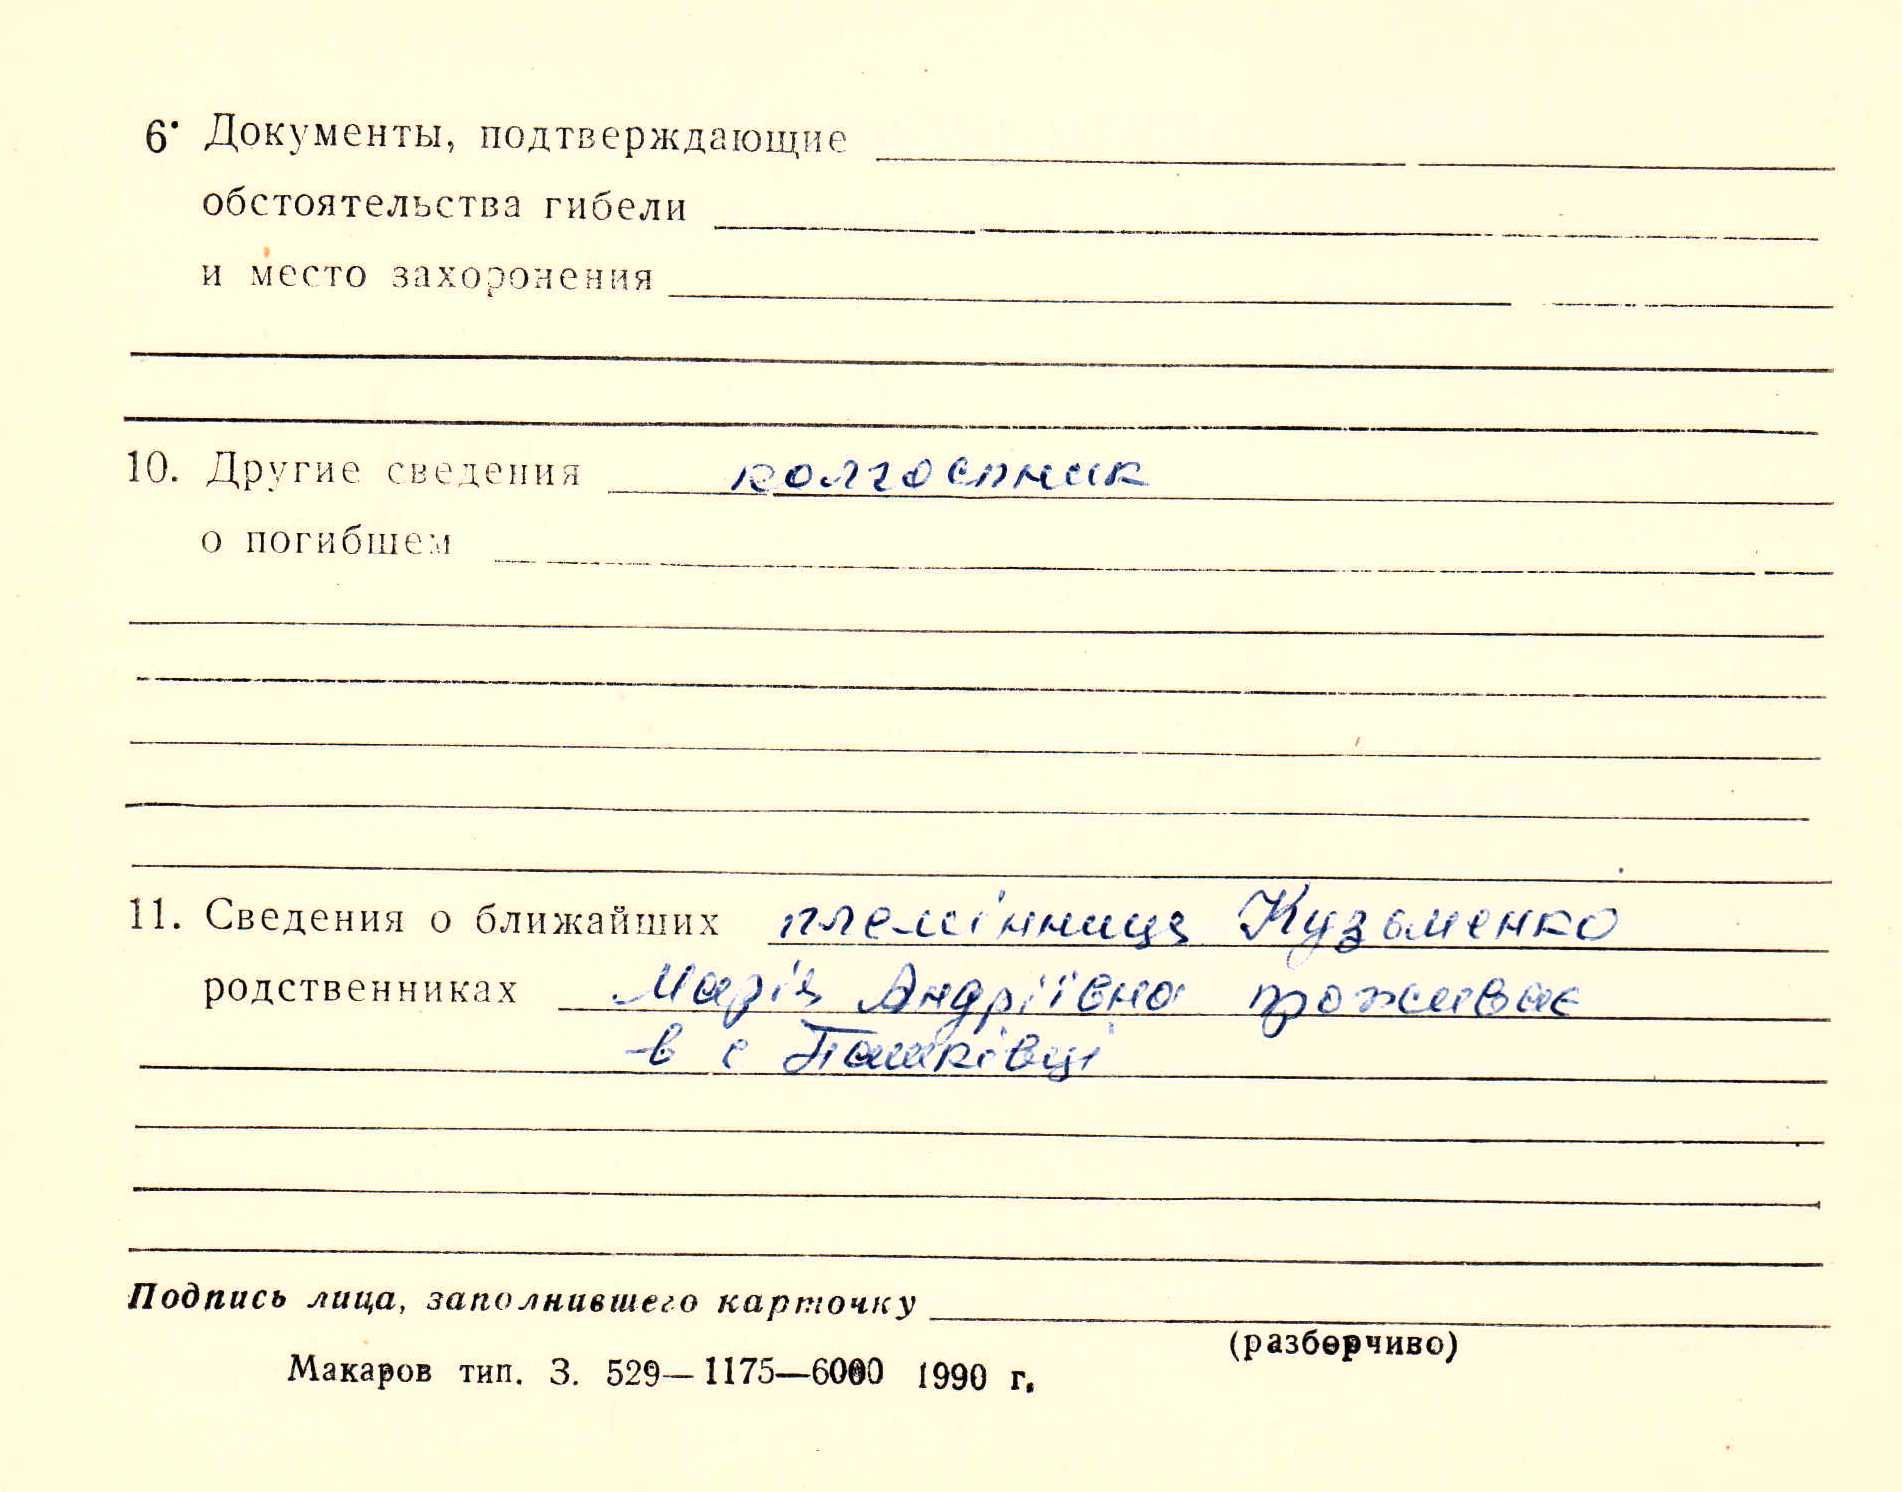 6. Документы, подтверждающие
обстоятельства гибели
и место захоронения
10. Другие сведения колгоспник
о погибшем
11. Сведения о ближайших племінниця Кузьменко
родственниках Марія Андріївна проживає
в с Пашківці
Подпись лица, заполнившего карточку
(разборчиво)
Макаров тип. З. 529—1175—6000 1990 г.